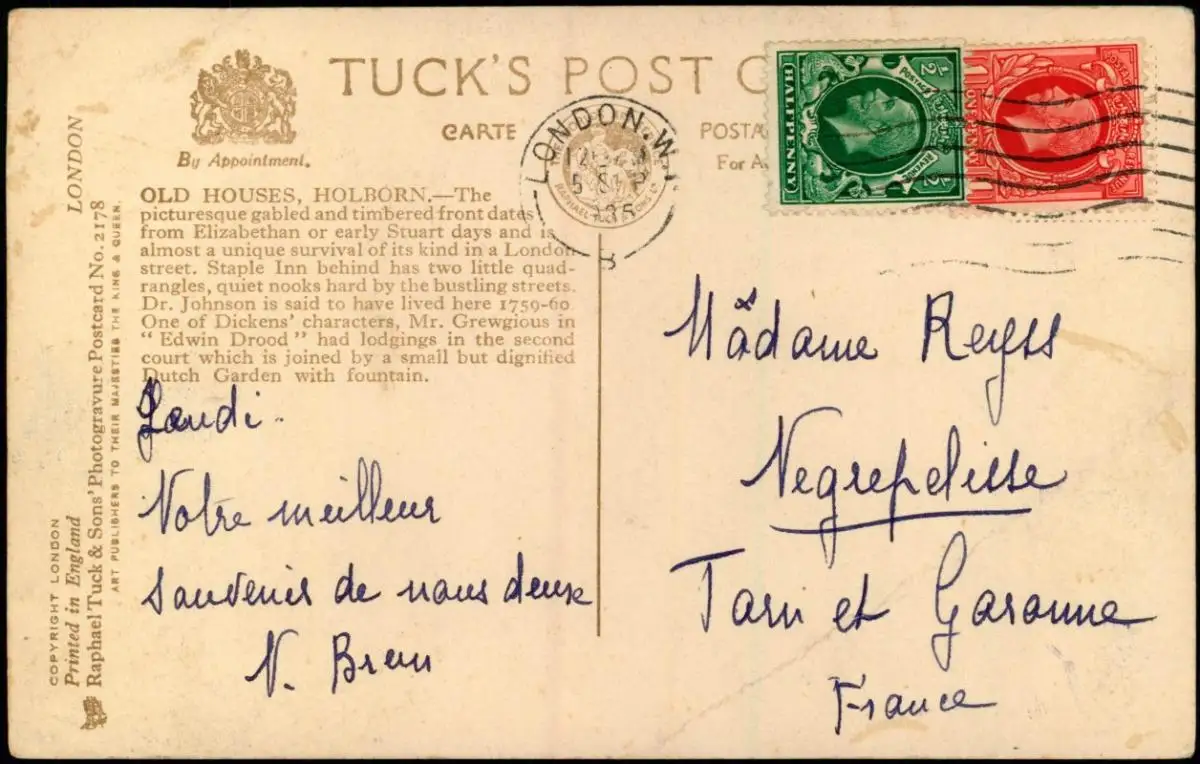 TUCK'S POST C
CARTE
POSTA
For A
By Appointment.
OLD HOUSES, HOLBORN.—The
picturesque gabled and timbered front dates
from Elizabethan or early Stuart days and is
almost a unique survival of its kind in a London
street. Staple Inn behind has two little quad-
rangles, quiet nooks hard by the bustling streets.
Dr. Johnson is said to have lived here 1759-60
One of Dickens' characters, Mr. Grewgious in
"Edwin Drood" had lodgings in the second
court which is joined by a small but dignified
Dutch Garden with fountain.
LONDON
COPYRIGHT LONDON
Printed in England
Raphael Tuck & Sons' Photogravure Postcard No. 2178
ART PUBLISHERS TO THEIR MAJESTIES THE KING & QUEEN.
LONDON. W.1
1935
B
½
POSTAGE
REVENUE
½
HALFPENNY
Notre meilleur
souvenir de nous deux
Madame Reyss
Negrepelisse
Tarn et Garonne
France